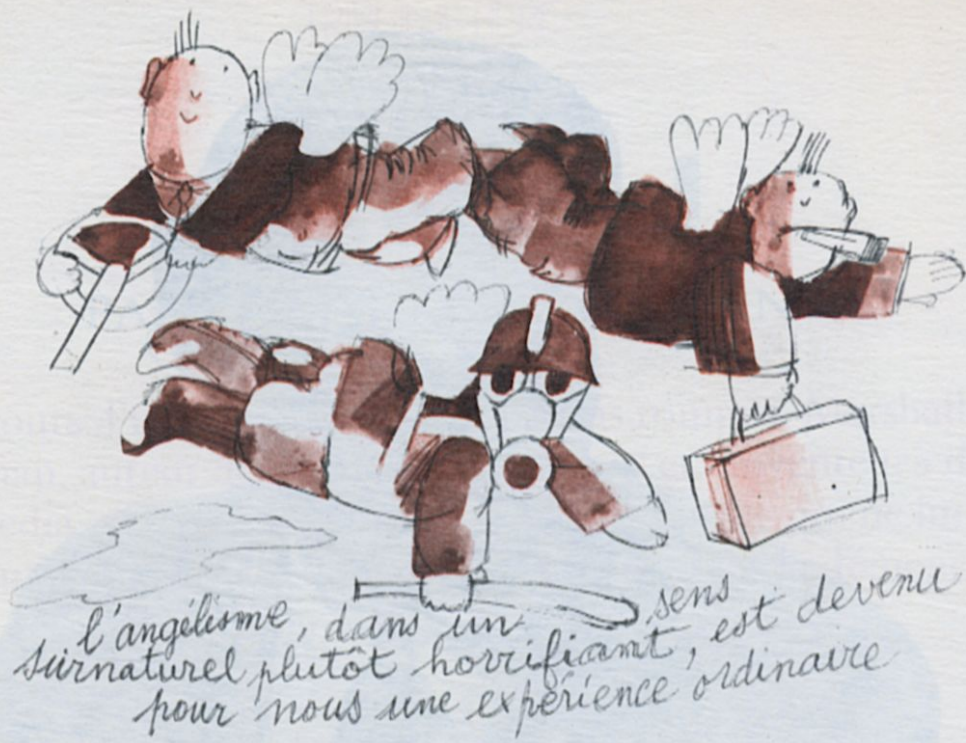 l'angélisme, dans un sens
surnaturel plutôt horrifiant, est devenu
pour nous une expérience ordinaire